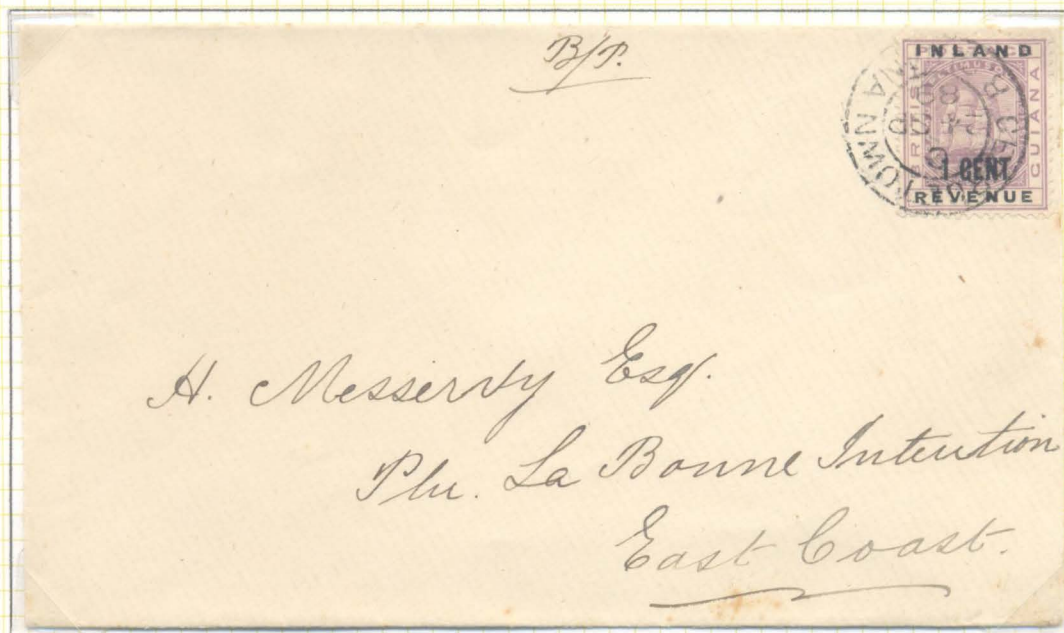 B/P.
INLAND
BRITISH
GUIANA
1 CENT
REVENUE
H. Messervy Esq.
Pln. La Bonne Intention
East Coast.